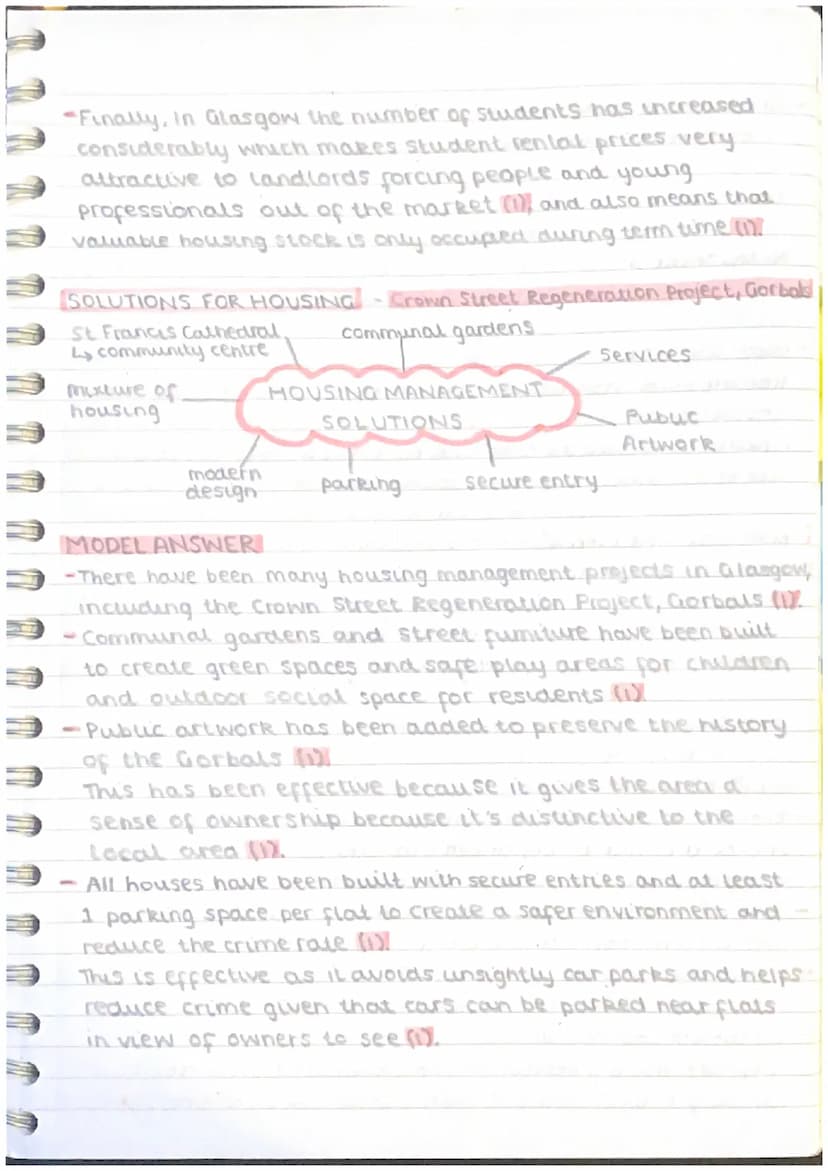 -Finally, in Glasgow the number of students has increased
considerably which makes student rental prices very
attractive to landlords forcing people and young
professionals out of the market (1), and also means that
valuable housing stock is only occupied during term time (1).
SOLUTIONS FOR HOUSING - Crown Street Regeneration Project, Gorbals
St Francis Cathedral
↳ community centre
communal gardens
Services
mixture of
housing
HOUSING MANAGEMENT
SOLUTIONS
Public
Artwork
modern
design
parking
secure entry
MODEL ANSWER
-There have been many housing management projects in Glasgow,
including the Crown Street Regeneration Project, Gorbals (1).
- Communal gardens and street furniture have been built
to create green spaces and safe play areas for children
and outdoor social space for residents (1)
- Public artwork has been added to preserve the history
of the Gorbals (1)
This has been effective because it gives the area a
sense of ownership because it's distinctive to the
local area (1).
- All houses have been built with secure entries and at least
1 parking space per flat to create a safer environment and
reduce the crime rate (1)
This is effective as it avoids unsightly car parks and helps
reduce crime given that cars can be parked near flats
in view of owners to see (1).